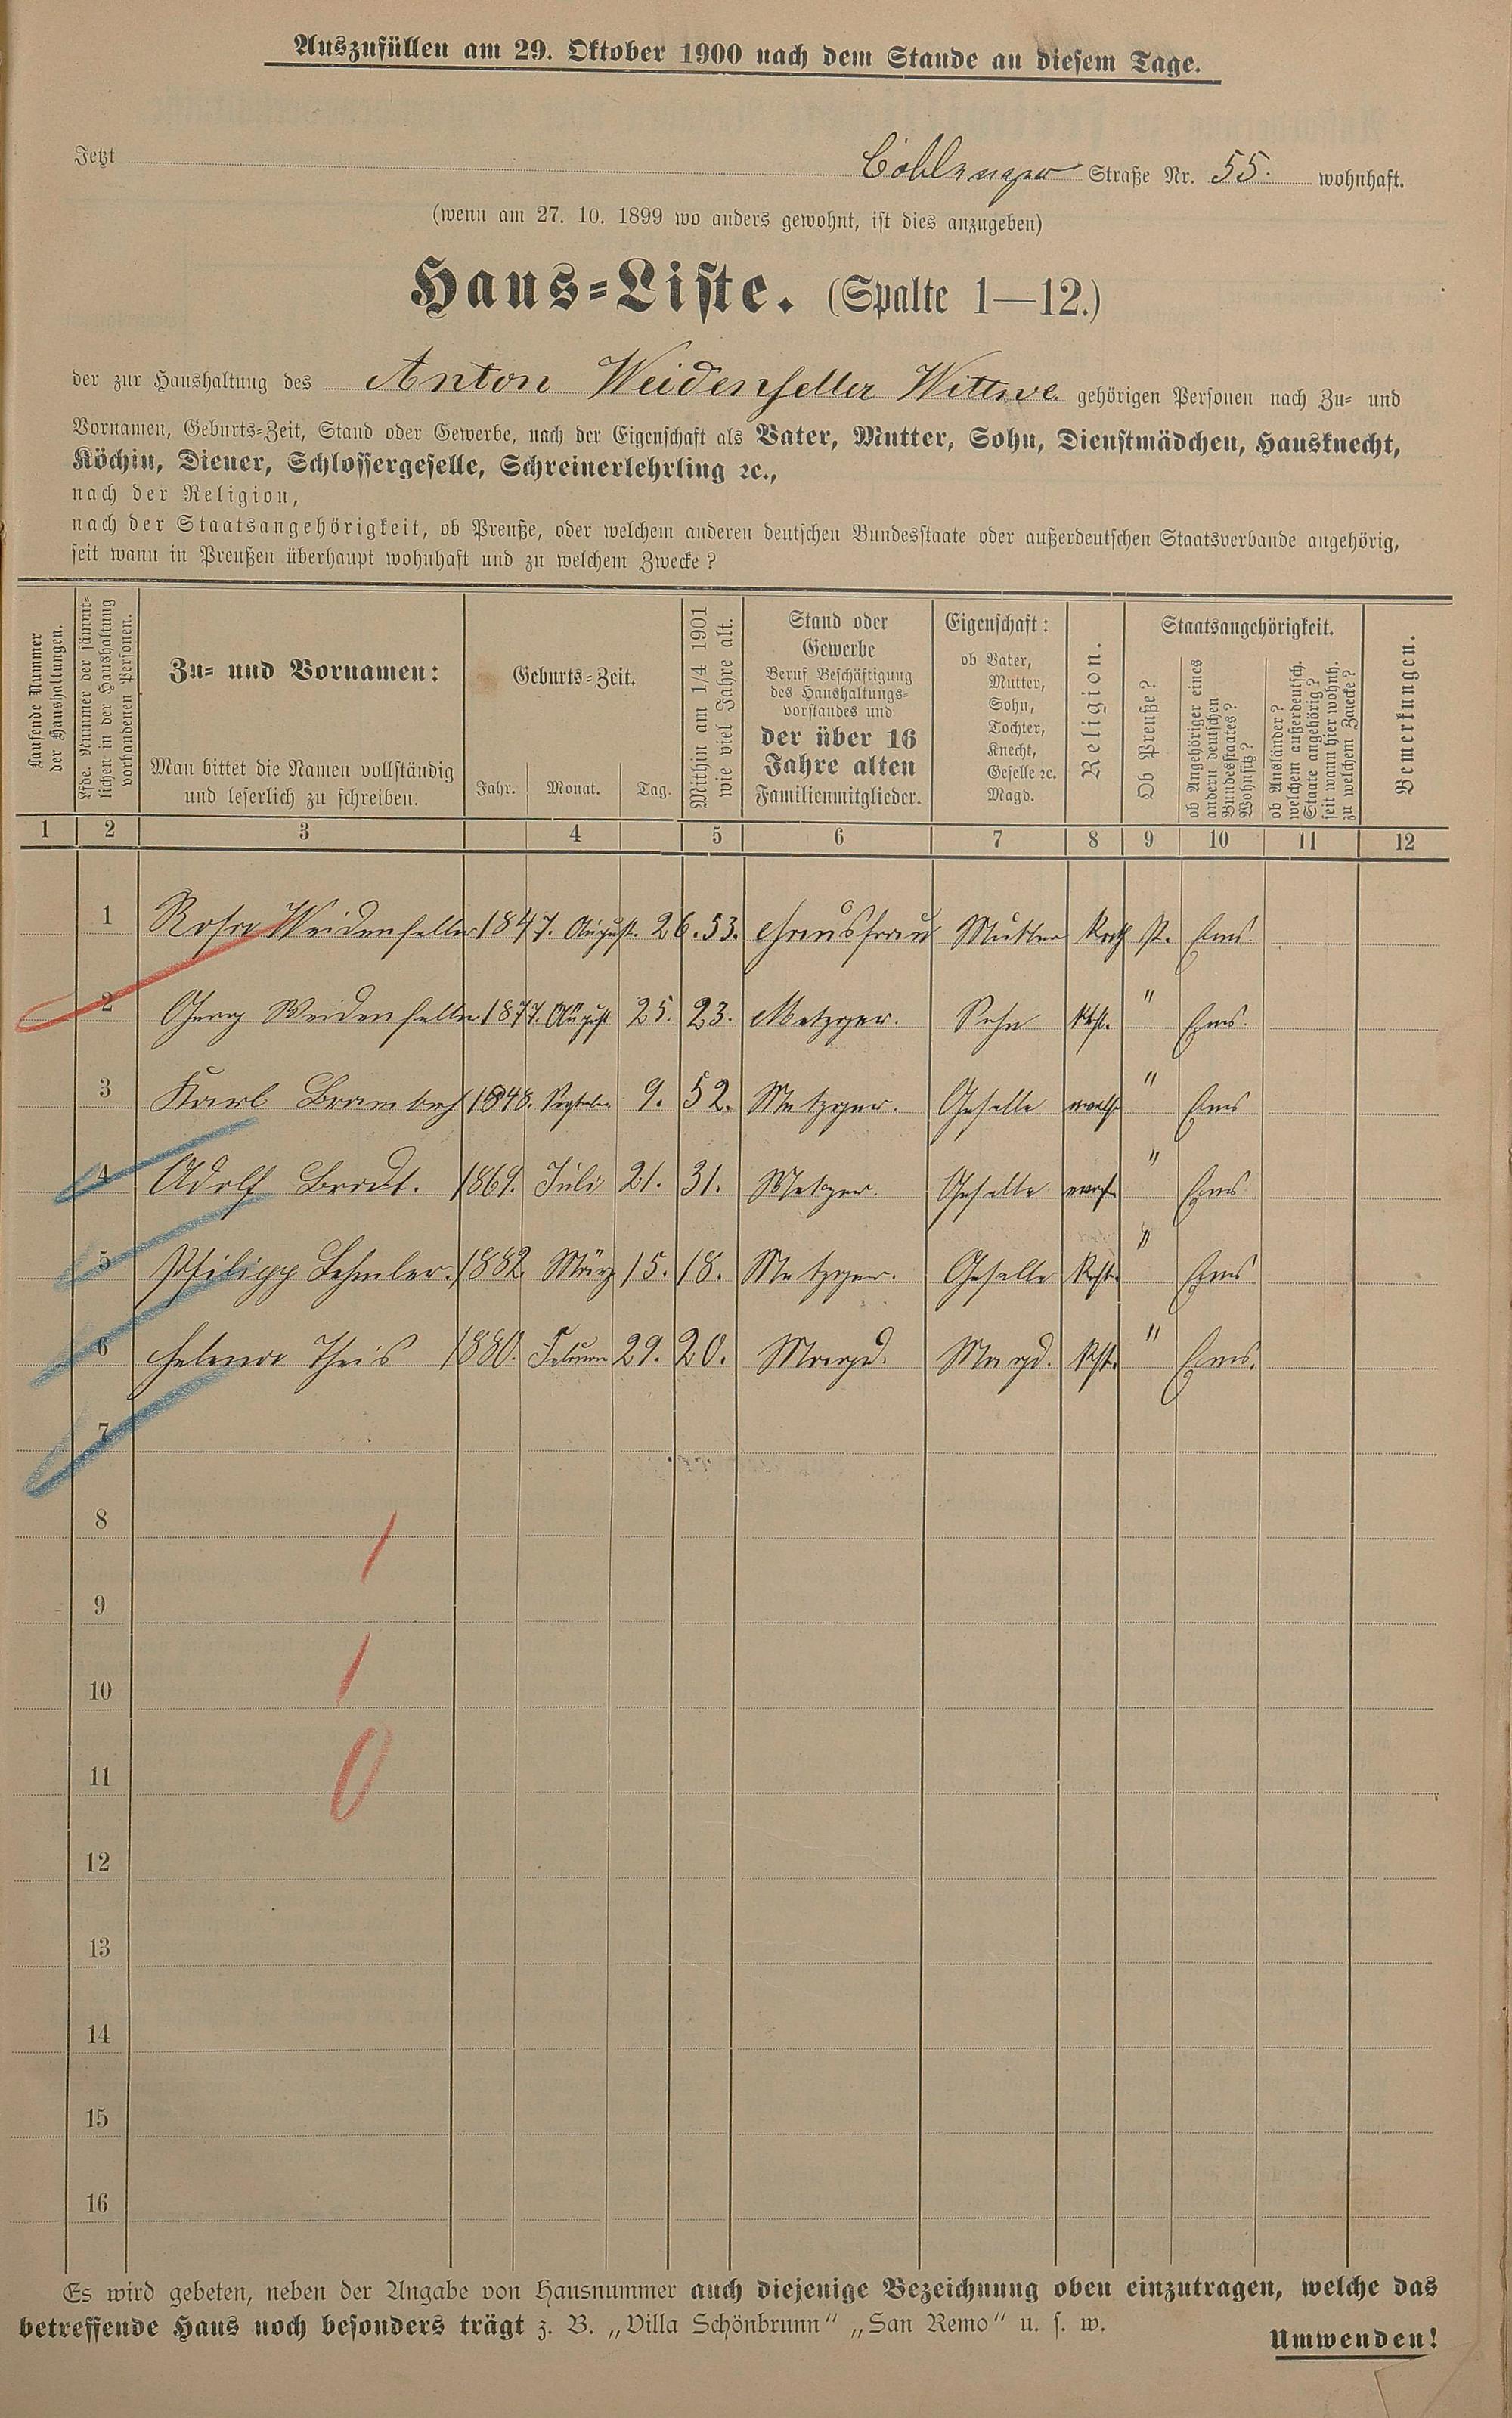 Auszufüllen am 29. Oktober 1900 nach dem Stande an diesem Tage.
Jetzt Coblenzer Straße Nr. 55. wohnhaft.
(wenn am 27. 10. 1899 wo anders gewohnt, ist dies anzugeben)
Haus-Liste. (Spalte 1—12.)
der zur Haushaltung des Anton Weidenfeller Wittwe gehörigen Personen nach Zu- und
Vornamen, Geburts-Zeit, Stand oder Gewerbe, nach der Eigenschaft als Vater, Mutter, Sohn, Dienstmädchen, Hausknecht,
Köchin, Diener, Schlossergeselle, Schreinerlehrling ꝛc.,
nach der Religion,
nach der Staatsangehörigkeit, ob Preuße, oder welchem anderen deutschen Bundesstaate oder außerdeutschen Staatsverbande angehörig,
seit wann in Preußen überhaupt wohnhaft und zu welchem Zwecke?
Laufende Nummer
der Haushaltungen.
Lfde. Nummer der sämmt-
lichen in der Haushaltung
vorhandenen Personen.
Zu- und Vornamen:
Man bittet die Namen vollständig
und leserlich zu schreiben.
Geburts-Zeit.
Jahr. Monat. Tag.
Mithin am 1/4 1901
wie viel Jahre alt.
Stand oder
Gewerbe
Beruf Beschäftigung
des Haushaltungs-
vorstandes und
der über 16
Jahre alten
Familienmitglieder.
Eigenschaft:
ob Vater,
Mutter,
Sohn,
Tochter,
Knecht,
Geselle ꝛc.
Magd.
Religion.
Staatsangehörigkeit.
Ob Preuße?
ob Angehöriger eines
andern deutschen
Bundesstaates?
Wohnsitz?
ob Ausländer?
welchem außerdeutsch.
Staate angehörig?
seit wann hier wohnh.
zu welchem Zwecke?
Bemerkungen.
1 2 3 4 5 6 7 8 9 10 11 12
1 Rosa Weidenfeller 1847. August. 26. 53. Hausfrau Mutter Kath P. Ems.
2 Georg Weidenfeller 1877. August 25. 23. Metzger. Sohn Kth. " Ems.
3 Karl 1848. September 9. 52. Metzger. Geselle " Ems
4 Adolf Brodt. 1869. Juli 21. 31. Metzger. Geselle " Ems
5 Philipp Lehmler. 1882. März 15. 18. Metzger. Geselle Kath. " Ems.
6 Helena Theis 1880. Februar 29. 20. Magd. Magd. Kth. " Ems.
7
8
9
10
11
12
13
14
15
16
Es wird gebeten, neben der Angabe von Hausnummer auch diejenige Bezeichnung oben einzutragen, welche das
betreffende Haus noch besonders trägt z. B. „Villa Schönbrunn“ „San Remo“ u. s. w.
Umwenden!